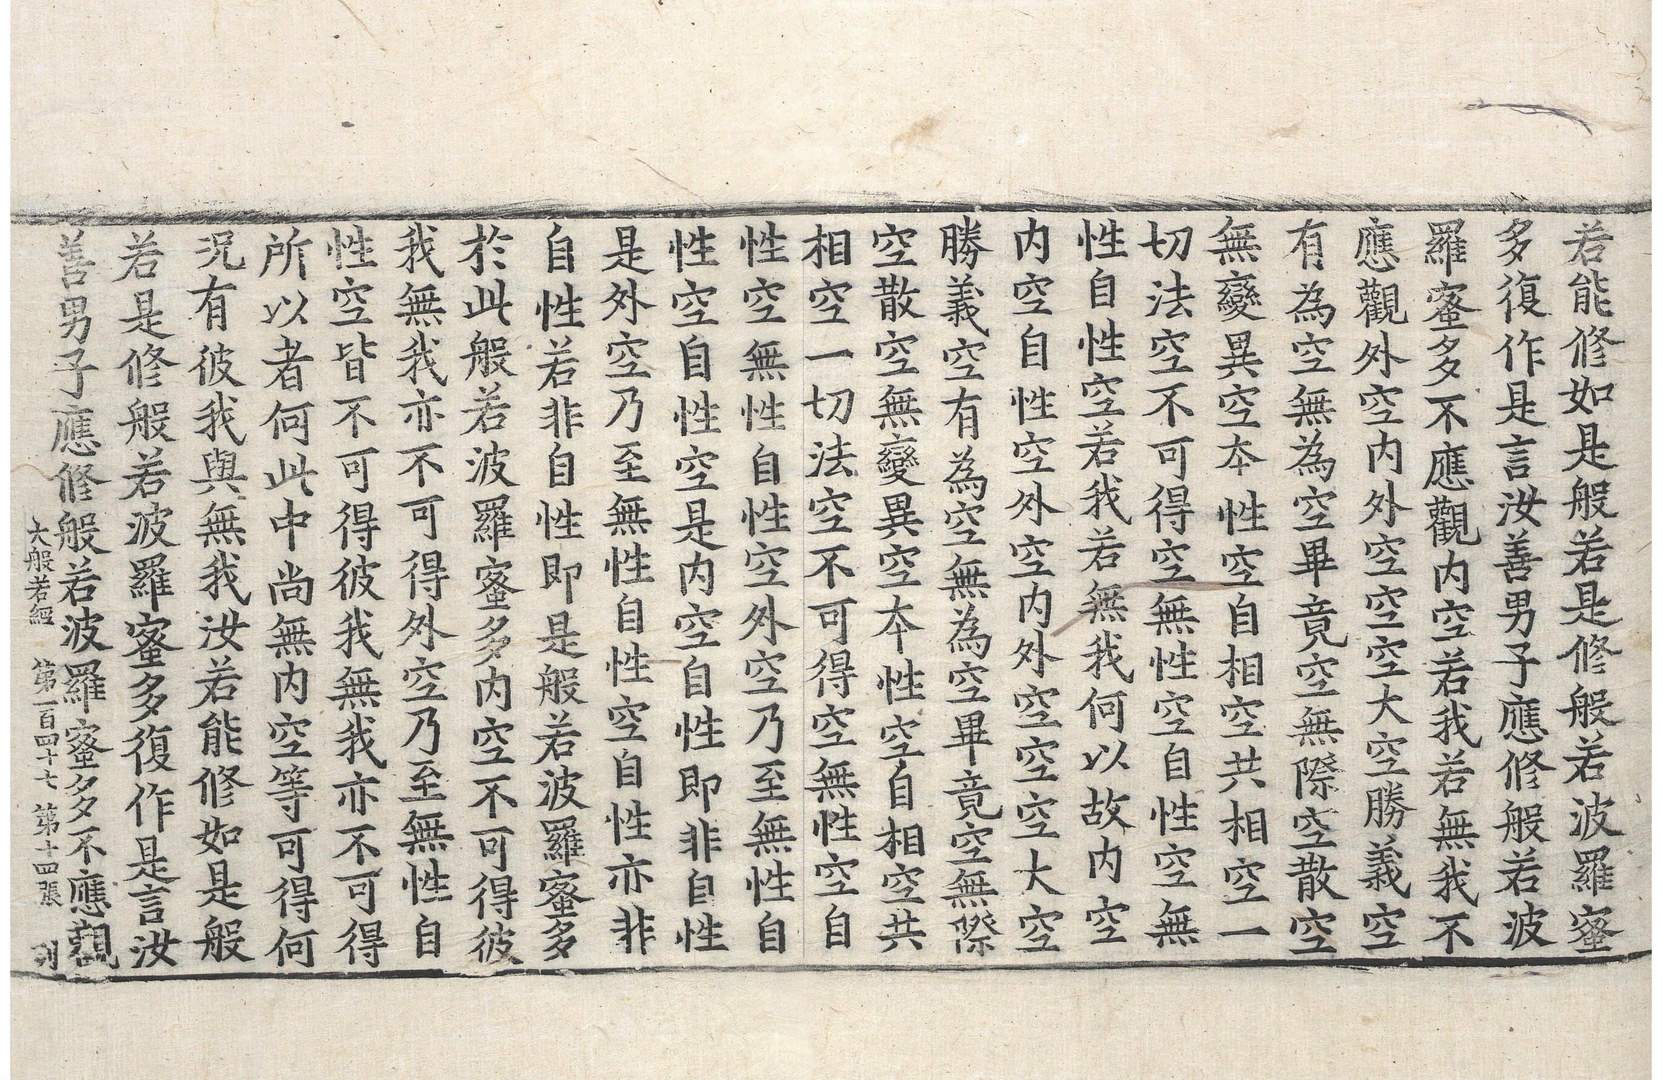 若能修如是般若是修般若波羅蜜
多復作是言汝善男子應修般若波
羅蜜多不應觀内空若我若無我不
應觀外空内外空空空大空勝義空
有為空無為空畢竟空無際空散空
無變異空本性空自相空共相空一
切法空不可得空無性空自性空無
性自性空若我若無我何以故内空
内空自性空外空内外空空空大空
勝義空有為空無為空畢竟空無際
空散空無變異空本性空自相空共
相空一切法空不可得空無性空自
性空無性自性空外空乃至無性自
性空自性空是内空自性即非自性
是外空乃至無性自性空自性亦非
自性若非自性即是般若波羅蜜多
於此般若波羅蜜多内空不可得彼
我無我亦不可得外空乃至無性自
性空皆不可得彼我無我亦不可得
所以者何此中尚無内空等可得何
況有彼我與無我汝若能修如是般
若是修般若波羅蜜多復作是言汝
善男子應修般若波羅蜜多不應觀
大般若經 第一百四十七 第十四張